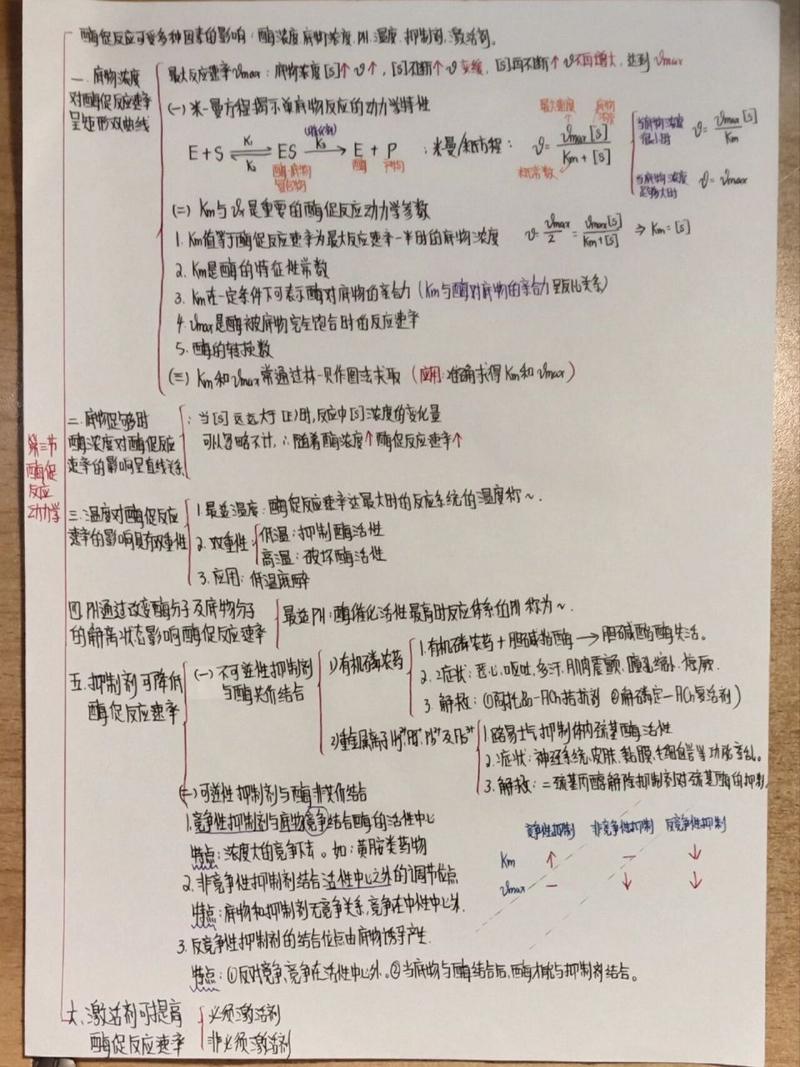 第三节
酶促
反应
动力学
酶促反应可受多种因素的影响:酶浓度.底物浓度.PH.温度.抑制剂.激活剂。
一.底物浓度
对酶促反应速率
呈矩形双曲线
最大反应速率Vmax:底物浓度[S]↑V↑,[S]不断↑V变缓,[S]再不断↑V不再增大,达到Vmax
(一)米-曼方程揭示单底物反应的动力学特性
E+S ⇌ ES → E + P ;米曼/氏方程: V = Vmax[S] / Km+[S]
K₁
K₂
K₃
酶-底物
复合物
酶
产物
最大速度
底物
米氏常数
当底物浓度
很小时 V = Vmax[S] / Km
当底物浓度
足够大时 V = Vmax
(二)Km与Vx是重要的酶促反应动力学参数
1.Km值等于酶促反应速率为最大反应速率一半时的底物浓度 V= Vmax/2 = Vmax[S] / Km+[S] ⇒ Km=[S]
2.Km是酶的特征性常数
3.Km在一定条件下可表示酶对底物的亲合力(Km与酶对底物的亲合力呈反比关系)
4.Vmax是酶被底物完全饱合时的反应速率
5.酶的转换数
(三)Km和Vmax常通过林-贝作图法求取(应用:准确求得Km和Vmax)
二.底物足够时
酶浓度对酶促反应
速率的影响呈直线关系
:当[S]远远大于[E]时,反应中[S]浓度的变化量
可以忽略不计,∴随着酶浓度↑酶促反应速率↑
三.温度对酶促反应
速率的影响具有双重性
1.最适温度:酶促反应速率达最大时的反应系统的温度称~.
2.双重性:低温:抑制酶活性
高温:破坏酶活性
3.应用:低温麻醉
四.PH通过改变酶分子及底物分子
的解离状态影响酶促反应速率
最适PH:酶催化活性最高时反应体系的PH称为~.
五.抑制剂可降低
酶促反应速率
(一)不可逆性抑制剂
与酶共价结合
1)有机磷农药
1.有机磷农药+胆碱酯酶→胆碱酯酶失活。
2.症状:恶心,呕吐,多汗,肌肉震颤,瞳孔缩小,惊厥.
3.解救:①阿托品-ACh拮抗剂 ②解磷定-ACh复活剂)
2)重金属离子
1.路易士气抑制体内巯基酶活性
2.症状:神经系统,皮肤,黏膜,毛细血管等功能紊乱。
3.解救:二巯基丙醇解除抑制剂对巯基酶的抑制.
(二)可逆性抑制剂与酶非共价结合
1.竞争性抑制剂与底物竞争结合酶的活性中心
特点:浓度大的竞争下去。如:黄胺类药物
2.非竞争性抑制剂结合活性中心之外的调节位点
特点:底物和抑制剂无竞争关系,竞争在中性中心外.
3.反竞争性抑制剂的结合位点由底物诱导产生.
特点:①反对竞争,竞争在活性中心外。②当底物与酶结合后,酶才能与抑制剂结合。
竞争性抑制 非竞争性抑制 反竞争性抑制
Km ↑ — ↓
Vmax — ↓ ↓
六.激活剂可提高
酶促反应速率
必须激活剂
非必须激活剂